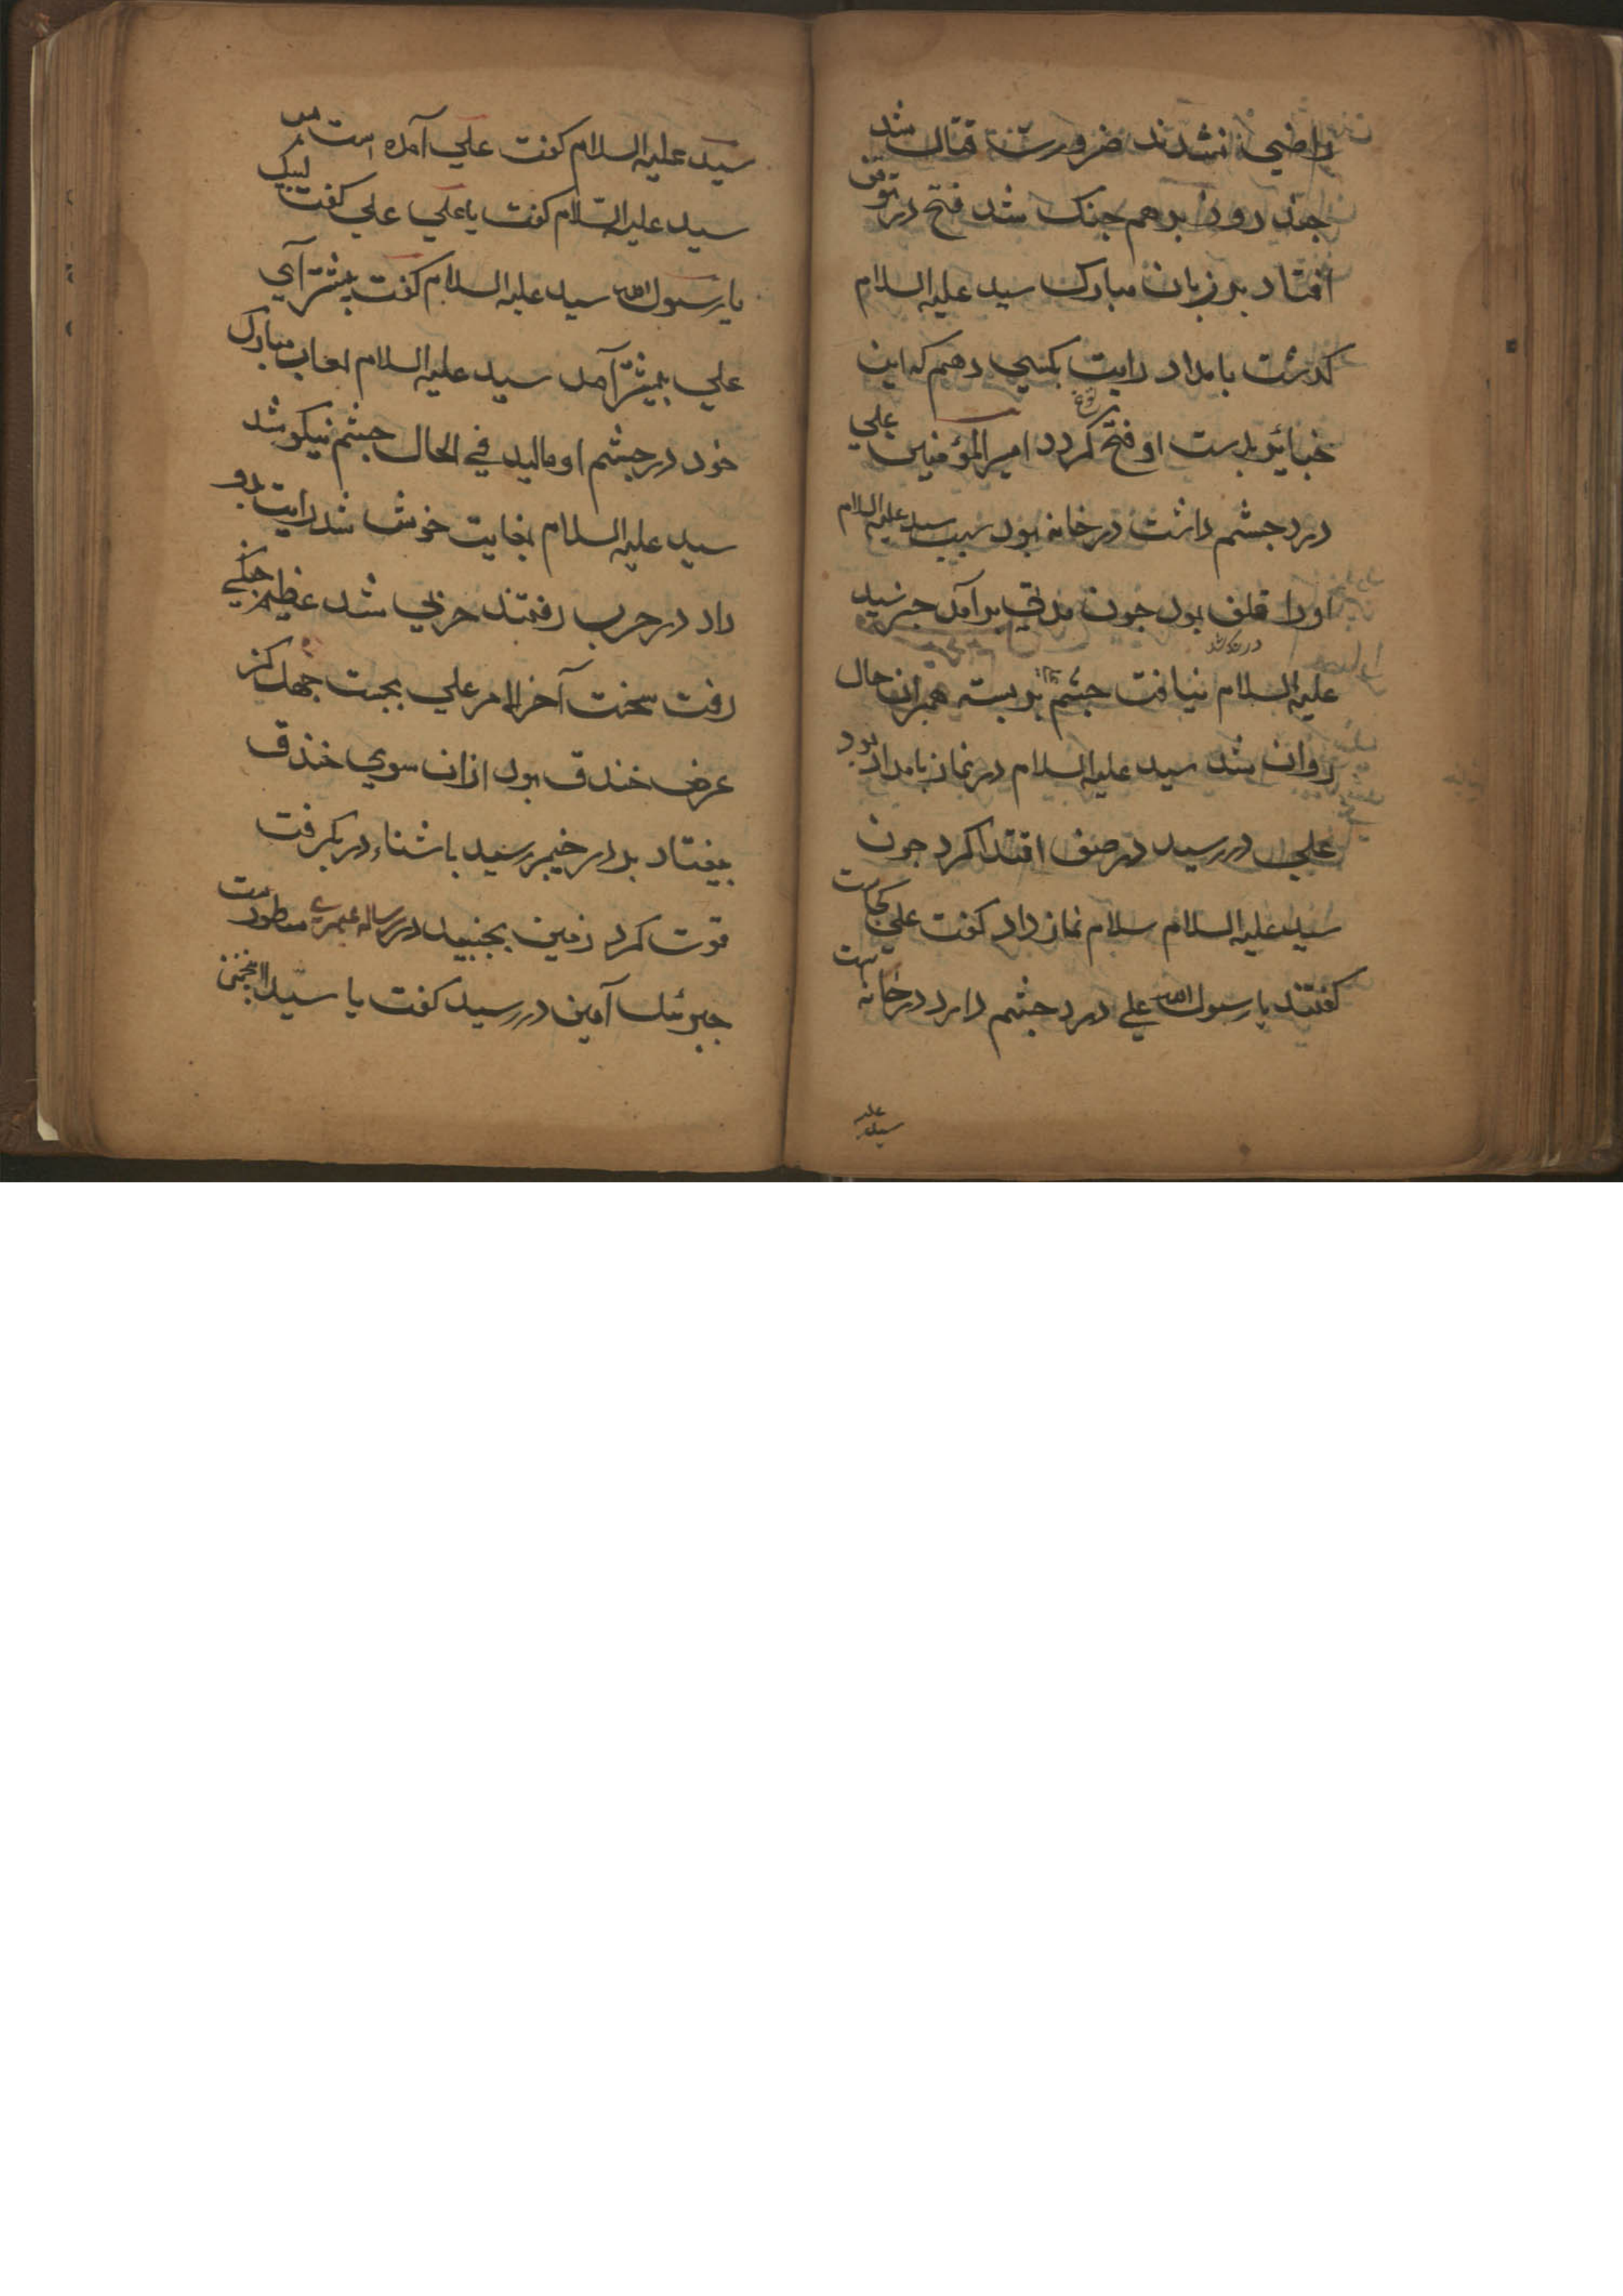 راضي نشدند ضرورت قتال شد
جند روز برهم جنک شد فتح در توقف
افتاد بر زبان مبارک سید علیه السلام
کذشت بامداد رایت بکسي دهم که این
خبائر بدست او فتح کردد امیر المؤمنین علي
درد جشم داشت در خانه بود سبب سید علیه السلام
اورا قلق بود جون مدتي برآمد خبر سید
علیه السلام نیافت جشم بر بسته همبران حال
روان شد سید علیه السلام در نماز بامداد بود
علي در رسید در صف اقتدا کرد جون
سید علیه السلام سلام نماز داد کفت علي کجاست
کفتند یا رسول الله علي درد جشم دارد در خانه است
سید علیه
سید علیه السلام کفت علي آمده است بس
سید علیه السّلام کفت یا علي علي کفت لبیک
یا رسول الله سید علیه السلام کفت بیشتر آي
علي بیشتر آمد سید علیه السلام لعاب مبارک
خود در جشم او مالید في الحال جشم نیکو شد
سید علیه السلام بغایت خوش شد رایت بدو
داد در حرب رفتند حربي شد عظیم جنکي
رفت سخت آخر الامر علي بجست جهل کز
عرض خندق بود ازان سوي خندق
بیفتاد بدر خیبر رسید باشناء در بکرفت
قوت کرد زمین بجنبید در رساله عمریه مسطورست
جبرئیل آمین در رسید کفت یا سید